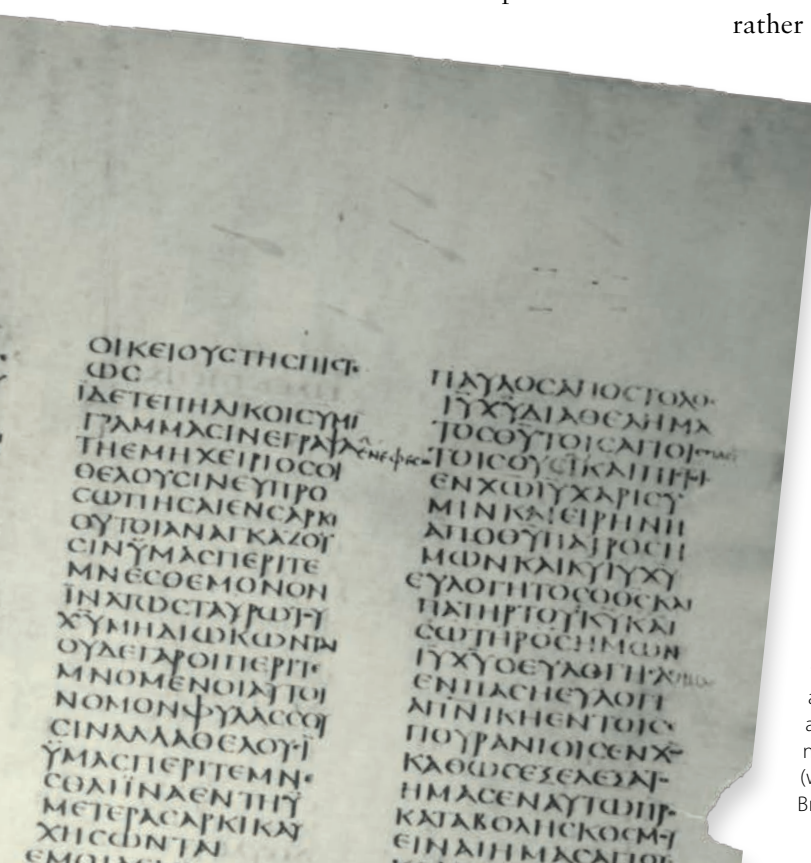 rather
ΟΙΚΕΙΟΥϹΤΗϹΠΙϹΤΕ
ΩϹ
ΪΔΕΤΕΠΗΛΙΚΟΙϹΫΜΙ
ΓΡΑΜΜΑϹΙΝΕΓΡΑΨΑ
ΤΗΕΜΗΧΕΙΡΙΟϹΟΙ
ΘΕΛΟΥϹΙΝΕΥΠΡΟ
ϹΩΠΗϹΑΙΕΝϹΑΡΚΙ
ΟΥΤΟΙΑΝΑΓΚΑΖΟΥ
ϹΙΝΫΜΑϹΠΕΡΙΤΕ
ΜΝΕϹΘΕΜΟΝΟΝ
ΪΝΑΤΩϹΤΑΥΡΩΤΟΥ
Χ̅Υ̅ΜΗΔΙΩΚΩΝΤΑΙ
ΟΥΔΕΓΑΡΟΙΠΕΡΙΤΕ
ΜΝΟΜΕΝΟΙΑΥΤΟΙ
ΝΟΜΟΝΦΥΛΑϹϹΟΥ
ϹΙΝΑΛΛΑΘΕΛΟΥϹΙ
ΫΜΑϹΠΕΡΙΤΕΜΝΕ
ϹΘΑΙΪΝΑΕΝΤΗΫ
ΜΕΤΕΡΑϹΑΡΚΙΚΑΥ
ΧΗϹΩΝΤΑΙ
ΠΑΥΛΟϹΑΠΟϹΤΟΛΟϹ
Ι̅Υ̅Χ̅Υ̅ΔΙΑΘΕΛΗΜΑ
ΤΟϹΘ̅Υ̅ΤΟΙϹΑΓΙΟΙϹ
ενεφεϲω
ΤΟΙϹΟΥϹΙΚΑΙΠΙϹΤΟΙϹ
ΕΝΧ̅Ω̅Ι̅Υ̅ΧΑΡΙϹΥ
ΜΙΝΚΑΙΕΙΡΗΝΗ
ΑΠΟΘ̅Υ̅ΠΑΤΡΟϹΗ
ΜΩΝΚΑΙΚ̅Υ̅Ι̅Υ̅Χ̅Υ̅
ΕΥΛΟΓΗΤΟϹΟΘ̅Ϲ̅ΚΑΙ
ΠΑΤΗΡΤΟΥΚ̅Υ̅ΚΑΙ
ϹΩΤΗΡΟϹΗΜΩΝ
Ι̅Υ̅Χ̅Υ̅ΟΕΥΛΟΓΗϹΑϹ
ΕΝΠΑϹΗΕΥΛΟΓΙ
ΑΠ̅Ν̅ΙΚΗΕΝΤΟΙϹΕ
ΠΟΥΡΑΝΙΟΙϹΕΝΧ̅Ω̅
ΚΑΘΩϹΕΞΕΛΕΞΑΤΟ
ΗΜΑϹΕΝΑΥΤΩΠΡΟ
ΚΑΤΑΒΟΛΗϹΚΟϹΜΟΥ
ΕΙΝΑΙΗΜΑϹΑΓΙΟΥϹ